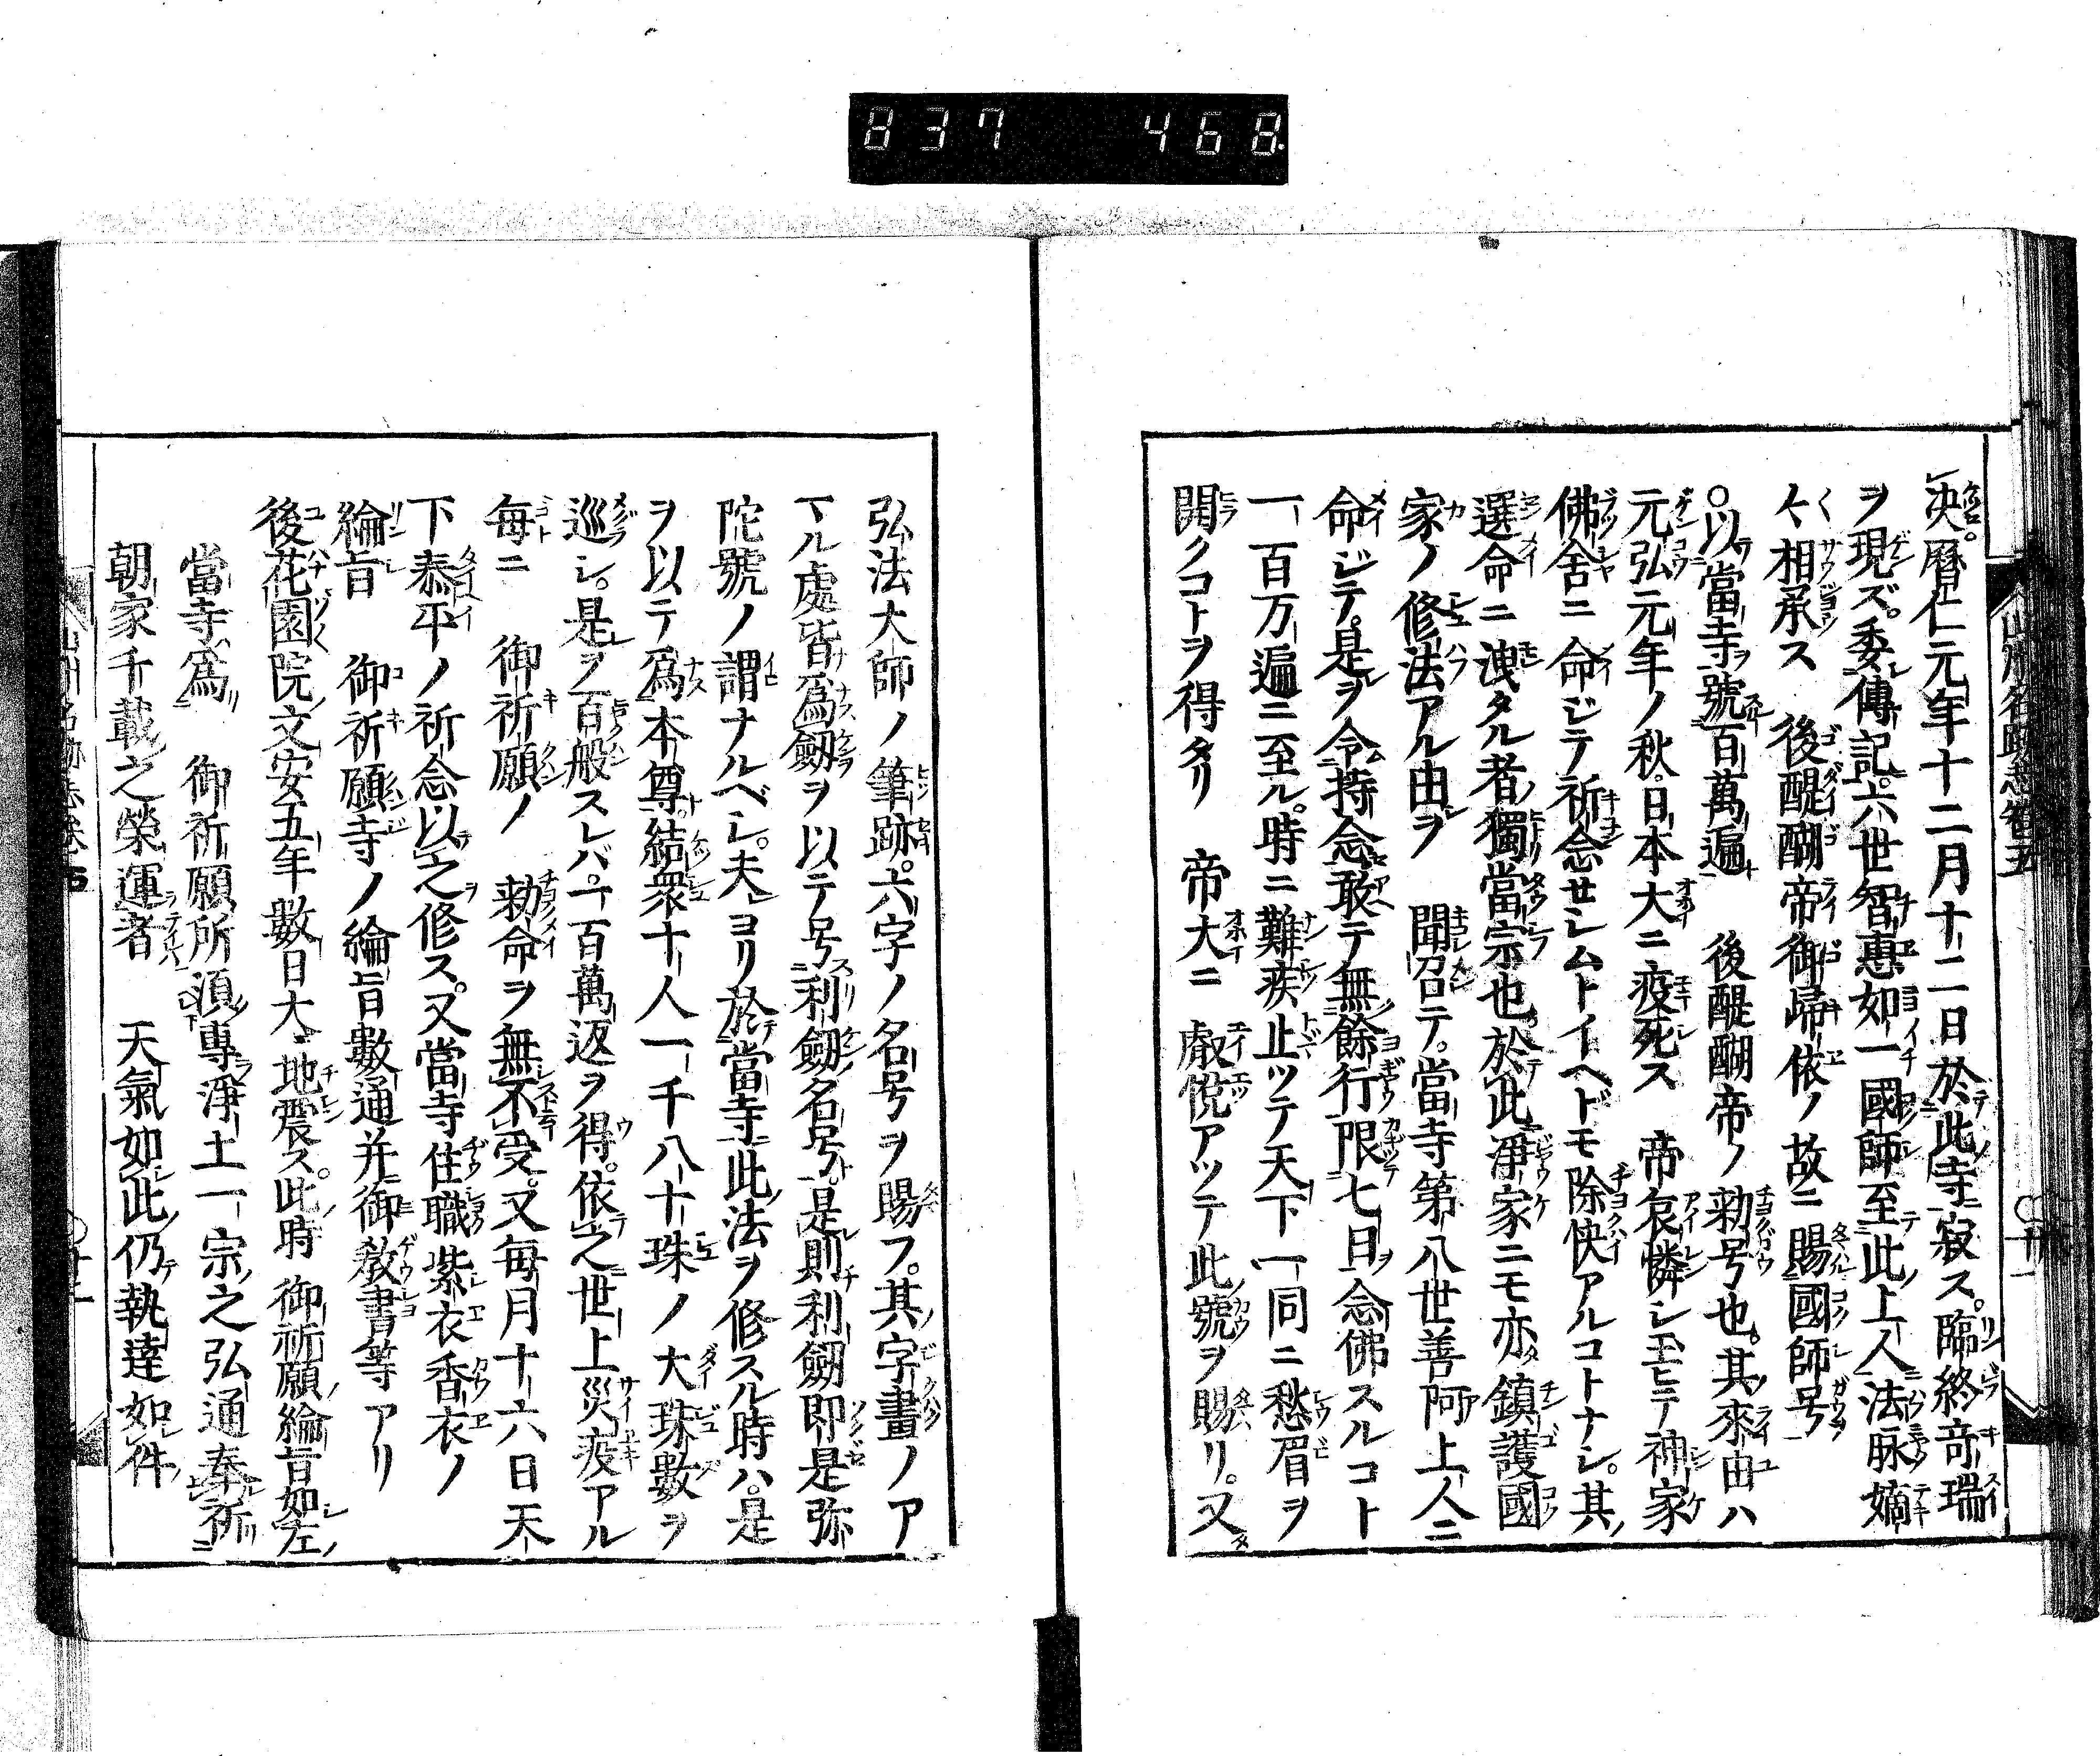 837 468
決。暦仁元年十二月十二日於此寺寂ス。臨終奇瑞
ヲ現ズ。委傳記。六世智惠如一國師至此上人法脉嫡
〻相承ス 後醍醐帝御歸依ノ故ニ賜國師号
○以當寺號百萬遍 後醍醐帝ノ勅号也。其來由ハ
元弘元年ノ秋。日本大ニ疫死ス 帝哀憐シ玉ヒテ神家
佛舍ニ命ジテ祈念セシムトイヘドモ除快アルコトナシ。其
選命ニ洩タル者獨當宗也於此淨家ニモ亦鎮護國
家ノ修法アル由ヲ 聞召テ。當寺第八世善阿上人ニ
命ジテ。是ヲ令持念敢テ無餘行限七日念佛スルコト
一百万遍ニ至ル。時ニ難疾止ッテ天下一同ニ愁眉ヲ
開クコトヲ得タリ 帝大ニ 叡悅アッテ此號ヲ賜リ。又
弘法大師ノ筆跡。六字ノ名号ヲ賜フ。其字畫ノア
マル處皆爲劔ヲ以テ号利劔名号。是則利劔即是弥
陀號ノ謂ナルベシ。夫ヨリ於當寺此法ヲ修スル時ハ。是
ヲ以テ爲本尊。結衆十人一千八十珠ノ大珠數ヲ
巡シ。是ヲ百般スレバ。一百萬返ヲ得。依之世上災疫アル
每ニ 御祈願ノ 勅命ヲ無不受。又每月十六日天
下泰平ノ祈念以之修ス。又當寺住職紫衣香衣ノ
綸旨 御祈願寺ノ綸旨數通并御敎書等アリ
後花園院文安五年數日大地震ス。此時 御祈願綸旨如左
當寺爲 御祈願所須專淨土一宗之弘通奉祈
朝家千載之榮運者 天氣如此仍執達如件